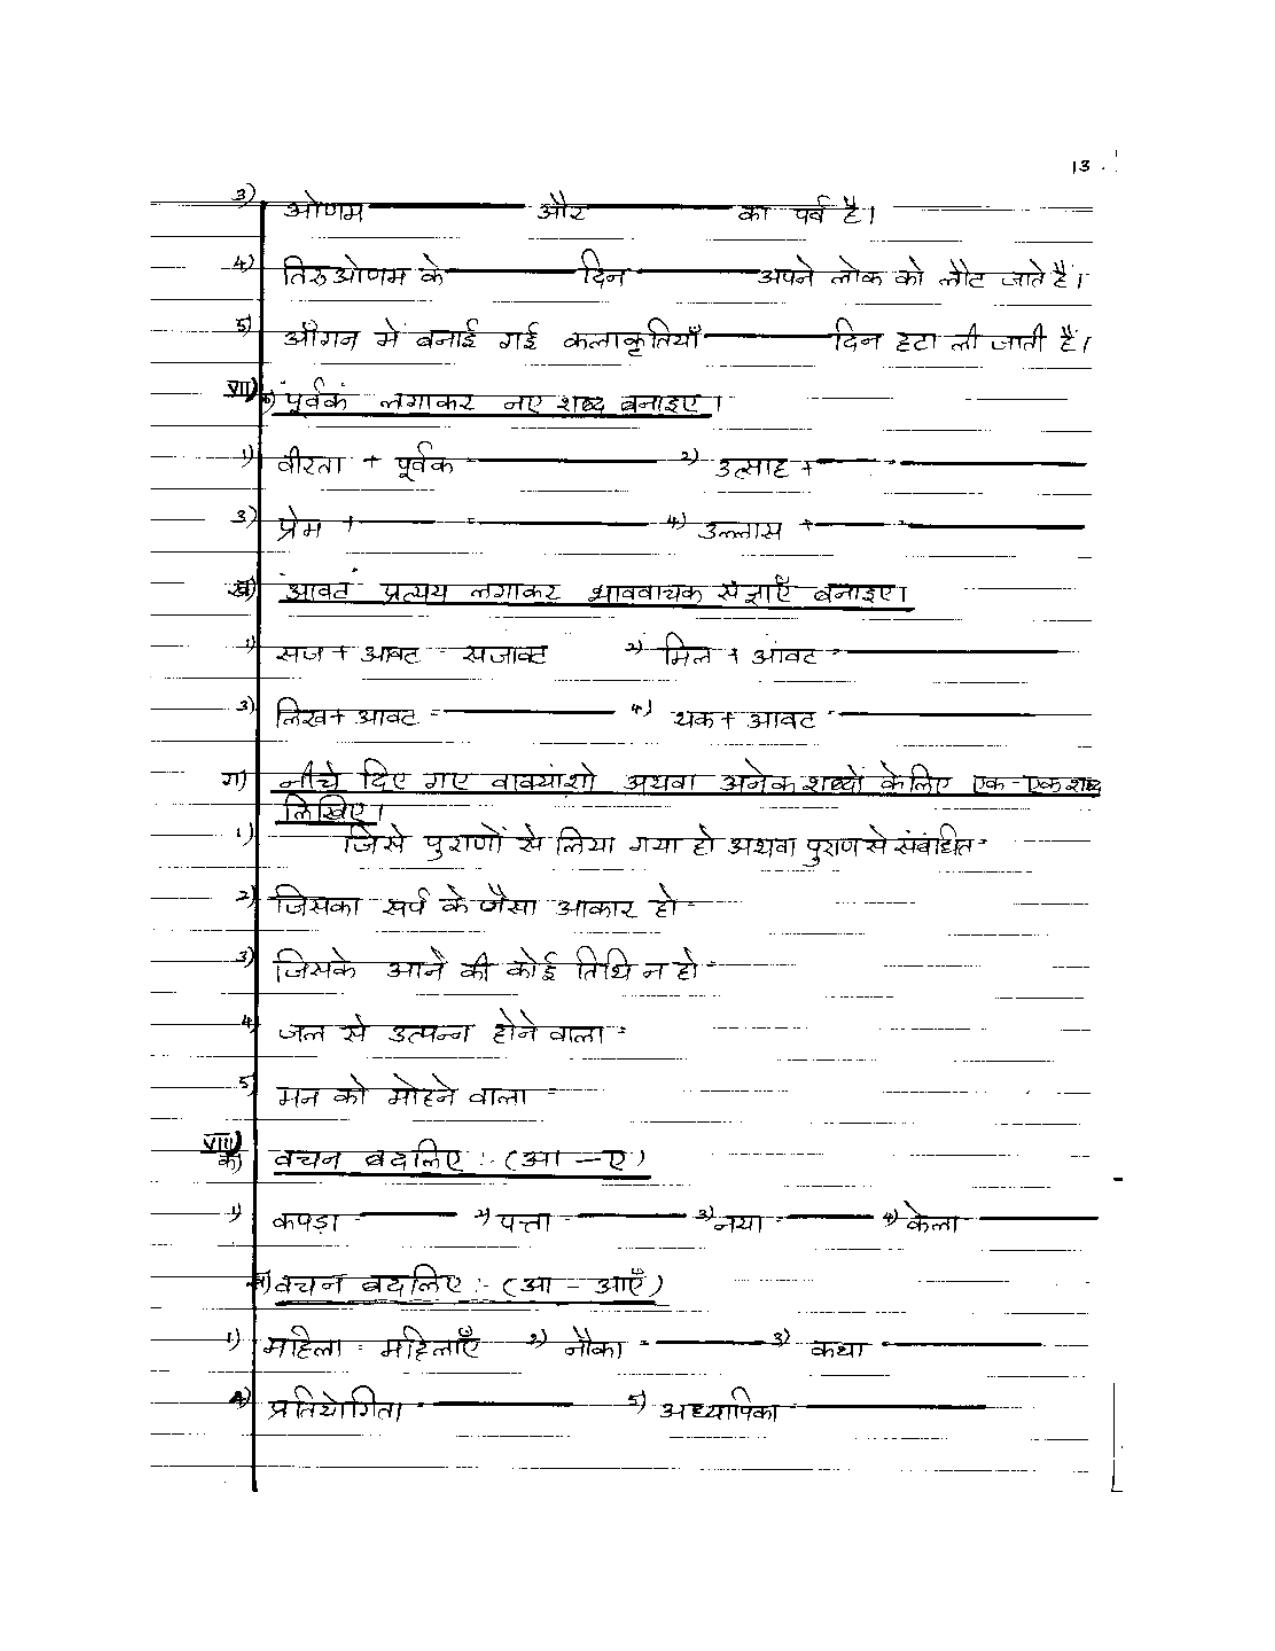 13.
3) ओणम ——— और ——— का पर्व है।
4) तिरुओणम के ——— दिन ——— अपने लोक को लौट जाते हैं।
5) आँगन में बनाई गई कलाकृतियाँ ——— दिन हटा ली जाती हैं।
VII) क) 'पूर्वक' लगाकर नए शब्द बनाइए।
1) वीरता + पूर्वक ——— 2) उत्साह + ——— = ———
3) प्रेम + ——— = ——— 4) उल्लास + ——— = ———
ख) 'आवट' प्रत्यय लगाकर भाववाचक संज्ञाएँ बनाइए।
1) सज + आवट = सजावट 2) मिल + आवट = ———
3) लिख + आवट = ——— 4) थक + आवट = ———
ग) नीचे दिए गए वाक्यांशो अथवा अनेक शब्दों के लिए एक-एक शब्द
लिखिए।
1) जिसे पुराणों से लिया गया हो अथवा पुराण से संबंधित =
2) जिसका सर्प के जैसा आकार हो =
3) जिसके आने की कोई तिथि न हो =
4) जल से उत्पन्न होने वाला =
5) मन को मोहने वाला =
VIII) क) वचन बदलिए :- (आ – ए)
1) कपड़ा ——— 2) पत्ता ——— 3) नया ——— 4) केला ———
ख) वचन बदलिए :- (आ – आएँ)
1) महिला = महिलाएँ 2) नौका = ——— 3) कथा ———
4) प्रतियोगिता ——— 5) अध्यापिका ———